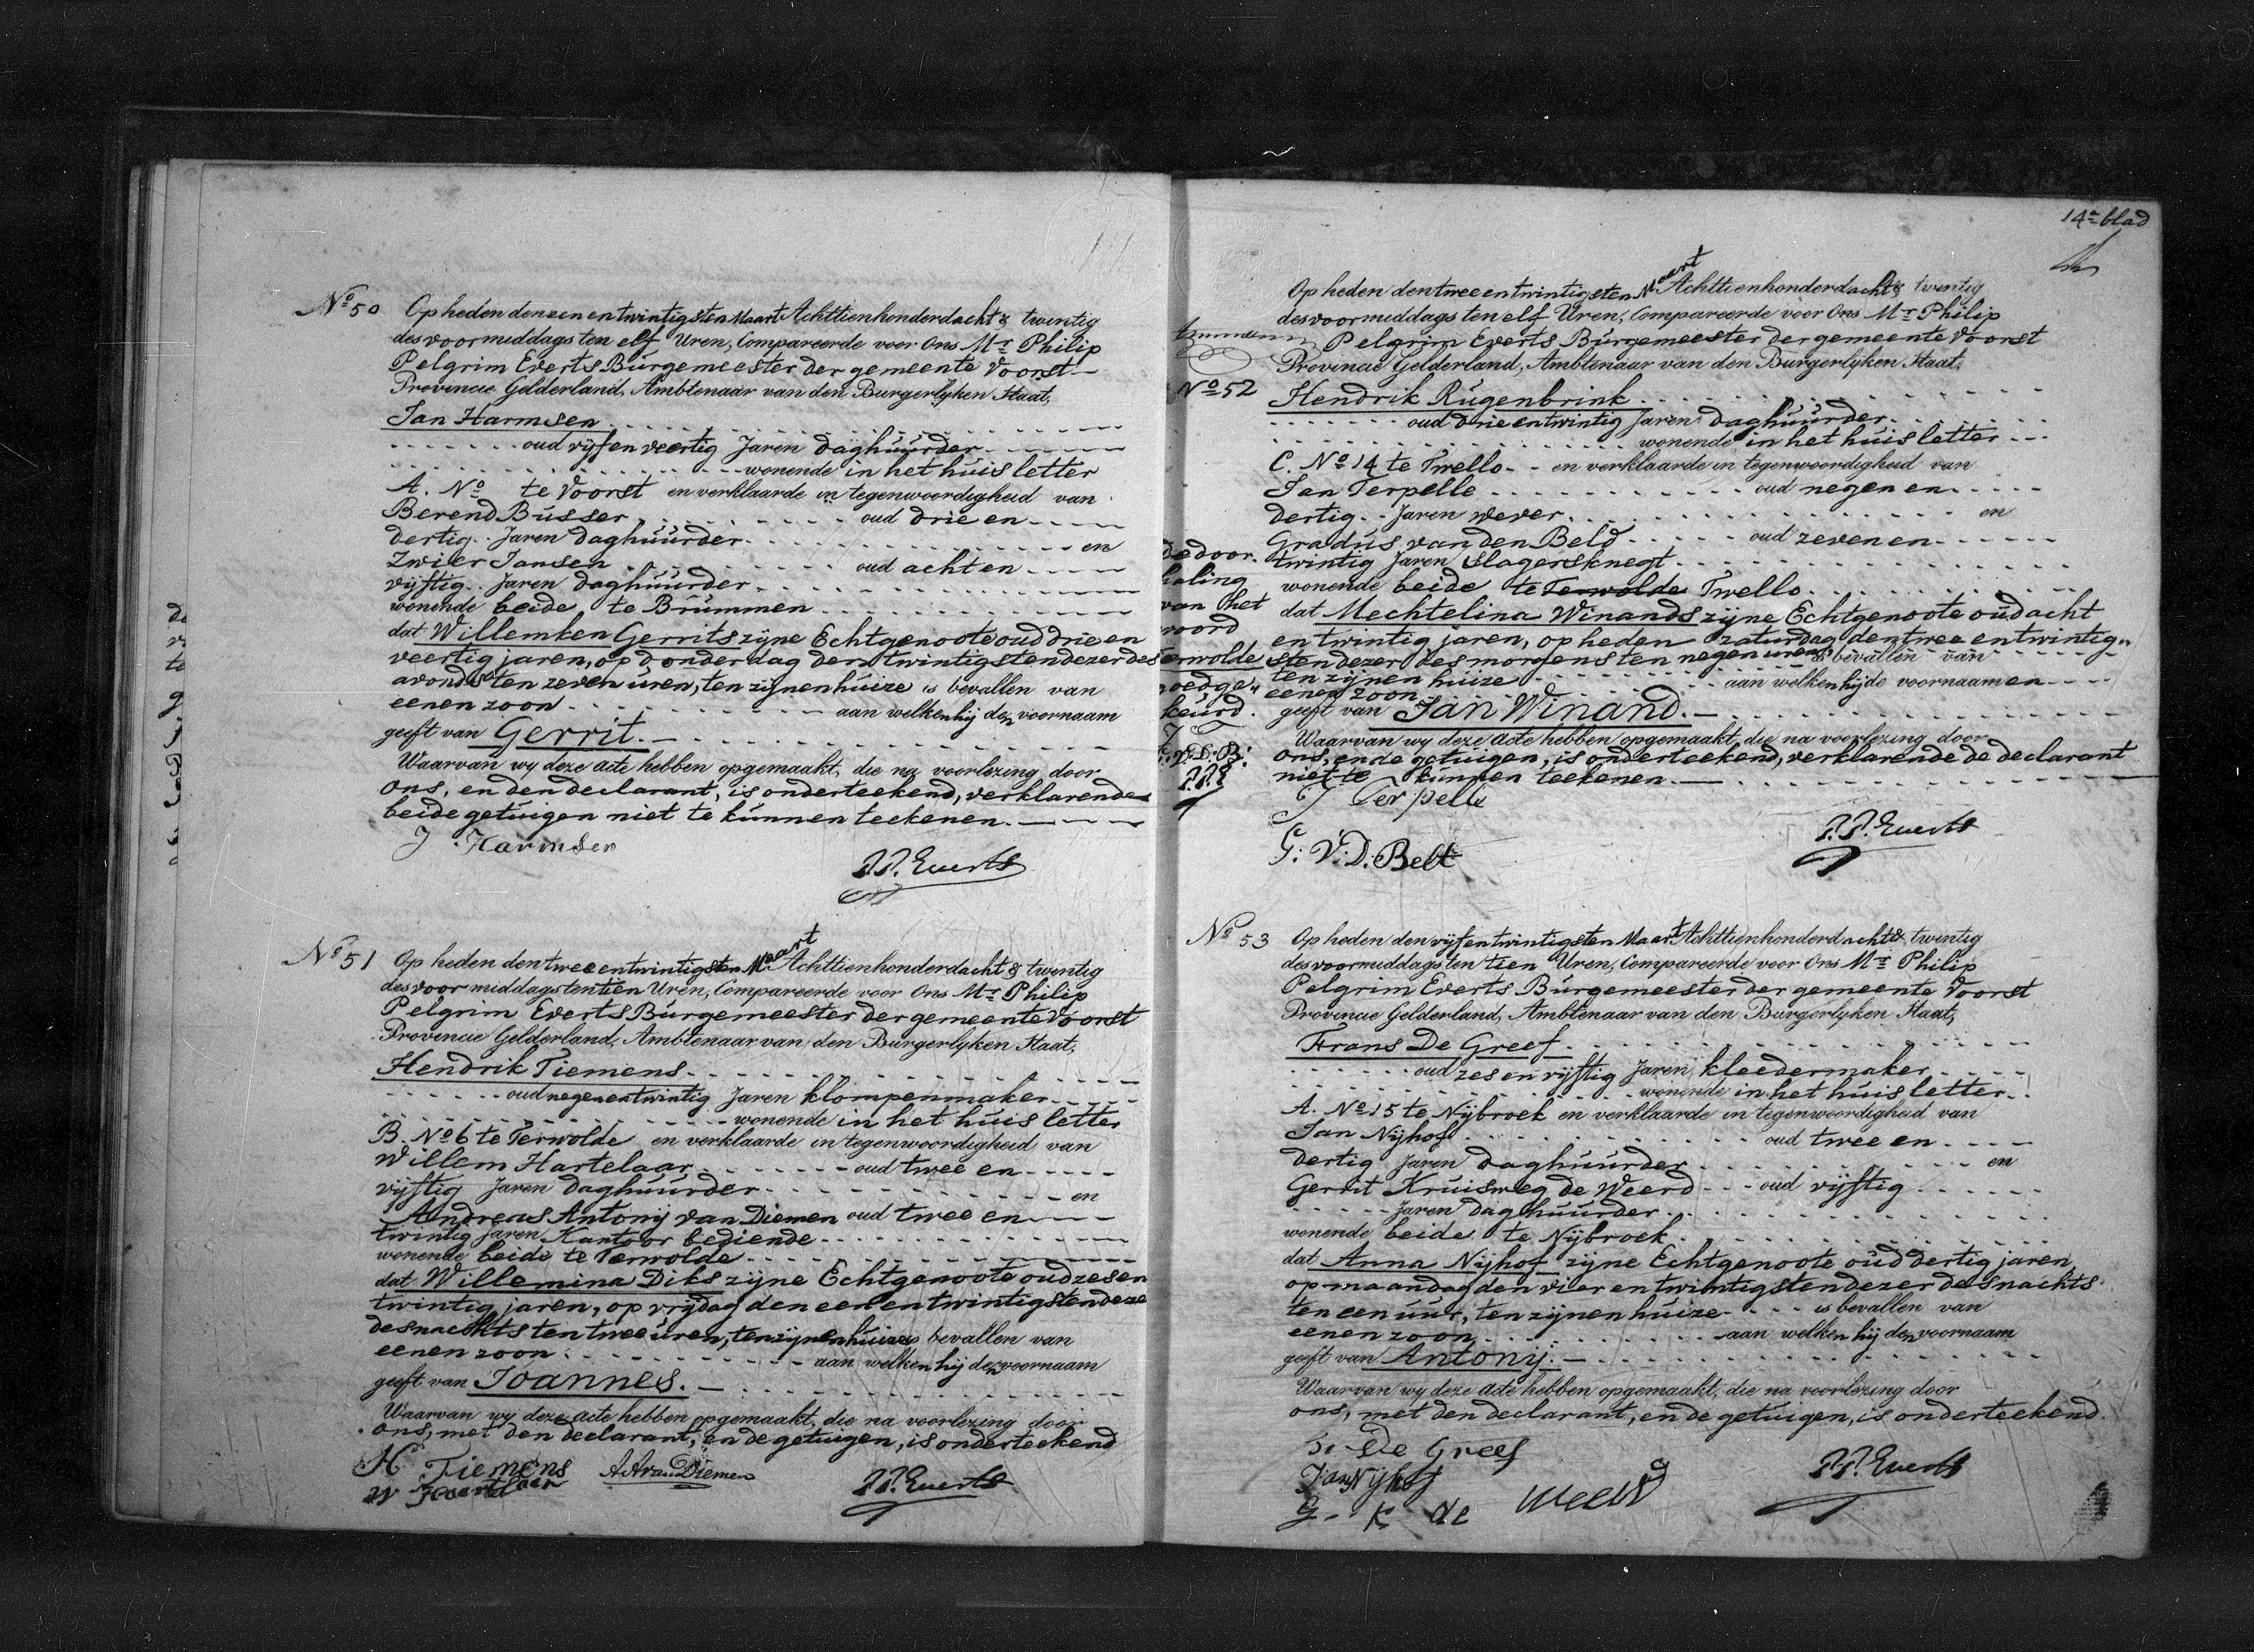 No 50 Op heden den een en twintigsten Maart Achttienhonderd acht & twintig
des voormiddags ten elf Uren, Compareerde voor Ons Mr Philip
Pelgrim Everts Burgemeester der gemeente Voorst
Provincie Gelderland, Ambtenaar van den Burgerlyken Staat,
Jan Harmsen
oud vijf en veertig Jaren daghuurder
wonende in het huis letter
A. No te Voorst en verklaarde in tegenwoordigheid van
Berend Busser oud drie en
dertig Jaren daghuurder en
Zwier Jansen oud acht en
vijftig Jaren daghuurder
wonende beide te Brummen
dat Willemken Gerrits zijne Echtgenoote oud drie en
veertig jaren, op donderdag den twintigsten dezer des
avonds ten zeven uren, ten zijnen huize is bevallen van
eenen zoon aan welken hij den voornaam
geeft van Gerrit.
Waarvan wy deze acte hebben opgemaakt, die na voorlezing door
ons, en den declarant, is onderteekend, verklarende
beide getuigen niet te kunnen teekenen.
J. Harmsen
P.P. Everts
No 51 Op heden den twee en twintigsten Maart Achttienhonderd acht & twintig
des voormiddags ten tien Uren, Compareerde voor Ons Mr Philip
Pelgrim Everts Burgemeester der gemeente Voorst
Provincie Gelderland, Ambtenaar van den Burgerlyken Staat,
Hendrik Tiemens
oud negen en twintig Jaren klompenmaker
wonende in het huis letter
B. No 6 te Terwolde en verklaarde in tegenwoordigheid van
Willem Hartelaar oud twee en
vijftig Jaren daghuurder en
Andreas Antonij van Diemen oud twee en
twintig Jaren Kantoor bediende
wonende beide te Terwolde
dat Willemina Diks zijne Echtgenoote oud zes en
twintig jaren, op vrijdag den een en twintigsten deze
des nachts ten twee uren, ten zijnen huize is bevallen van
eenen zoon aan welken hij den voornaam
geeft van Joannes.
Waarvan wy deze acte hebben opgemaakt, die na voorlezing door
ons, met den declarant, en de getuigen, is onderteekend
H Tiemens A A van Diemen
W Haertelaar P.P. Everts
14e blad
Op heden den twee en twintigsten Maart Achttienhonderd acht & twintig
des voormiddags ten elf Uren, Compareerde voor Ons Mr Philip
Pelgrim Everts Burgemeester der gemeente Voorst
Provincie Gelderland, Ambtenaar van den Burgerlyken Staat,
No 52 Hendrik Rugenbrink
oud drie en twintig Jaren daghuurder
wonende in het huis letter
C. No 14 te Twello en verklaarde in tegenwoordigheid van
Jan Terpelle oud negen en
dertig Jaren wever en
Gradus van den Beld oud zeven en
twintig Jaren Slagersknegt
wonende beide te Terwolde Twello
dat Mechtelina Winands zijne Echtgenoote oud acht
en twintig jaren, op heden zaturdag den twee en twintig
sten dezer des morgens ten negen uren is bevallen van
ten zijnen huize
eenen zoon aan welken hij de voornaamen
geeft van Jan Winand.
Waarvan wy deze acte hebben opgemaakt, die na voorlezing door
ons, en de getuigen, is onderteekend, verklarende de declarant
niet te kunnen teekenen.
de door
haling
van het
woord
Terwolde
goedge
keurd.
P.P.E
J Terpelle
G: V: D: Belt
P.P. Everts
No 53 Op heden den vijf en twintigsten Maart Achttienhonderd acht & twintig
des voormiddags ten tien Uren, Compareerde voor Ons Mr Philip
Pelgrim Everts Burgemeester der gemeente Voorst
Provincie Gelderland, Ambtenaar van den Burgerlyken Staat,
Frans De Greef
oud zes en vijftig Jaren kleedermaker
wonende in het huis letter
A. No 15 te Nijbroek en verklaarde in tegenwoordigheid van
Jan Nijhof oud twee en
dertig Jaren daghuurder en
Gerrit Kruisweg de Weerd oud vijftig
Jaren daghuurder
wonende beide te Nijbroek
dat Anna Nijhof zijne Echtgenoote oud dertig jaren
op maandag den vier en twintigsten dezer des nachts
ten een uur, ten zijnen huize is bevallen van
eenen zoon aan welken hij den voornaam
geeft van Antonij.
Waarvan wy deze acte hebben opgemaakt, die na voorlezing door
ons, met den declarant, en de getuigen, is onderteekend.
De Greef
Jan Nijhof
G. K de Weerd
P.P. Everts